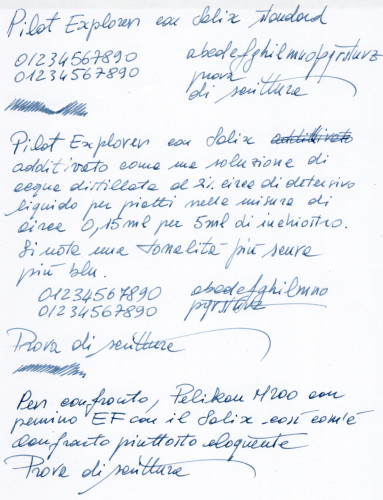 Pilot Explorer con Salix standard
01234567890 abcdefghilmnopqrstuvz
01234567890 prova
di scrittura
Pilot Explorer con Salix additivato
additivato come una soluzione di
acqua distillata al 2% circa di detersivo
liquido per piatti nella misura di
circa 0,15ml per 5ml di inchiostro.
Si nota una tonalità più scura
più blu.
01234567890 abcdefghilmno
01234567890 pqrstuvz
Prova di scrittura
Per confronto, Pelikan M200 con
pennino EF con il Salix così com'è
confronto piuttosto eloquente
Prova di scrittura